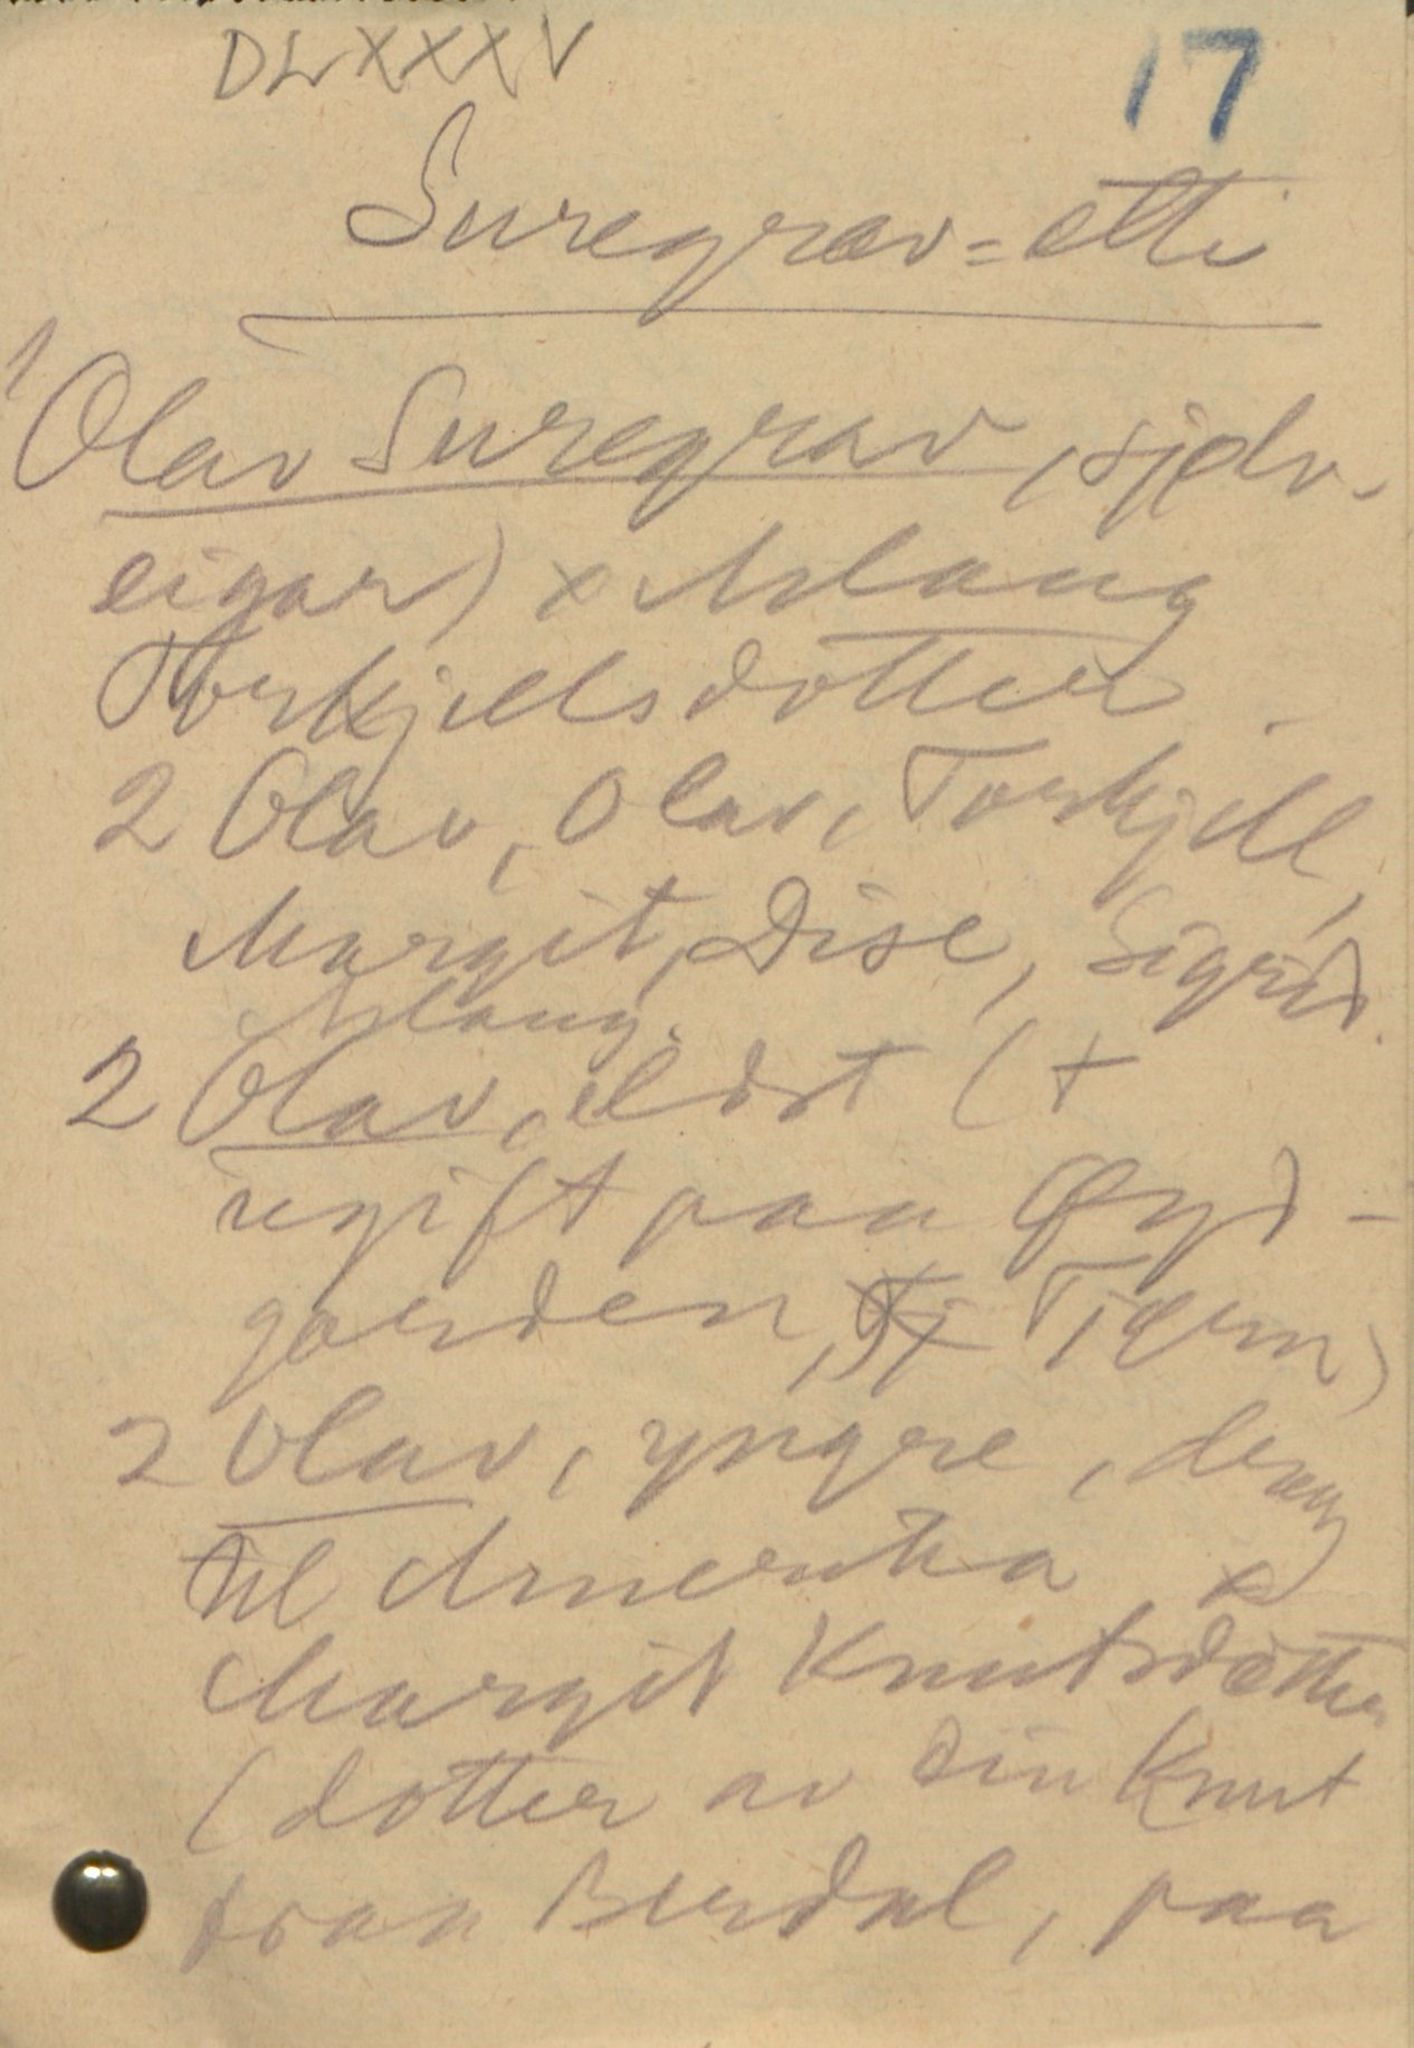 DLXXXV
17
Suregrav-etti
1 Olav Suregrav, sjølv-
eigar) x Aslaug
Torkjellsdotter.
2 Olav, Olav, Torkjell,
Margit, Dise, Sigrid.
Aslaug.
2 Olav, eldst (+
ugift paa Øygarden, Tjørn)
2 Olav, yngre,
til Amerika x
Margit Knutsdotter
(dotter av ein Knut
fraa Berdal, paa